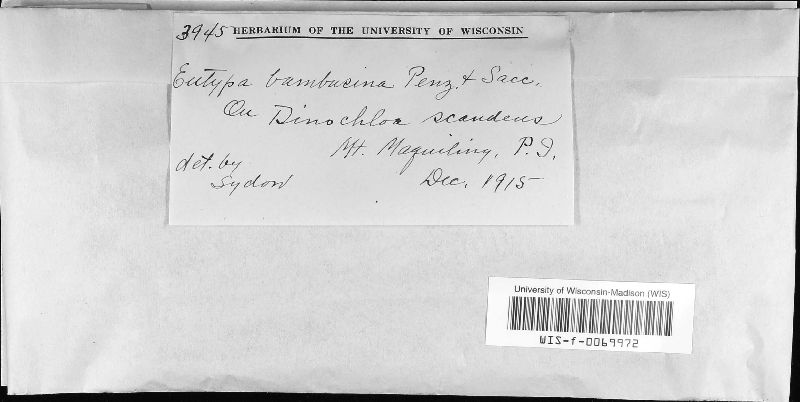 3945 HERBARIUM OF THE UNIVERSITY OF WISCONSIN
Eutypa bambusina Penz. & Sacc.
On Dinochloa scandens
Mt. Maquiling, P. I.
det. by
Sydow
Dec. 1915
University of Wisconsin-Madison (WIS)
WIS-f-0069972